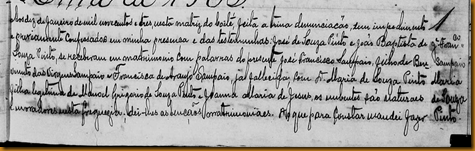 Aos dez de Janeiro de mil novecentos e tres nesta matriz do Salte, feita a trina denunciação, sem impedimento
e previamente Confessados em minha presença e das testemunhas José de Souza Pinto e João Baptista de
Souza Pinto, se receberam em matrimonio Com palavras de presente José Francisco Sampaio, filho de
Sampaio e Francisca de Araujo Sampaio, já fallecida, com D. Maria de Souza Pinto
filha legitima de Manoel Gregorio de Souza Pinto e Joanna Maria de Jesus, os nubentes são naturaes
e moradores nesta freguezia. Dei-lhes as bençãos matrimoniaes. Do que para Constar mandei fazer
1
Sampaio
Maria
de Souza
Pinto